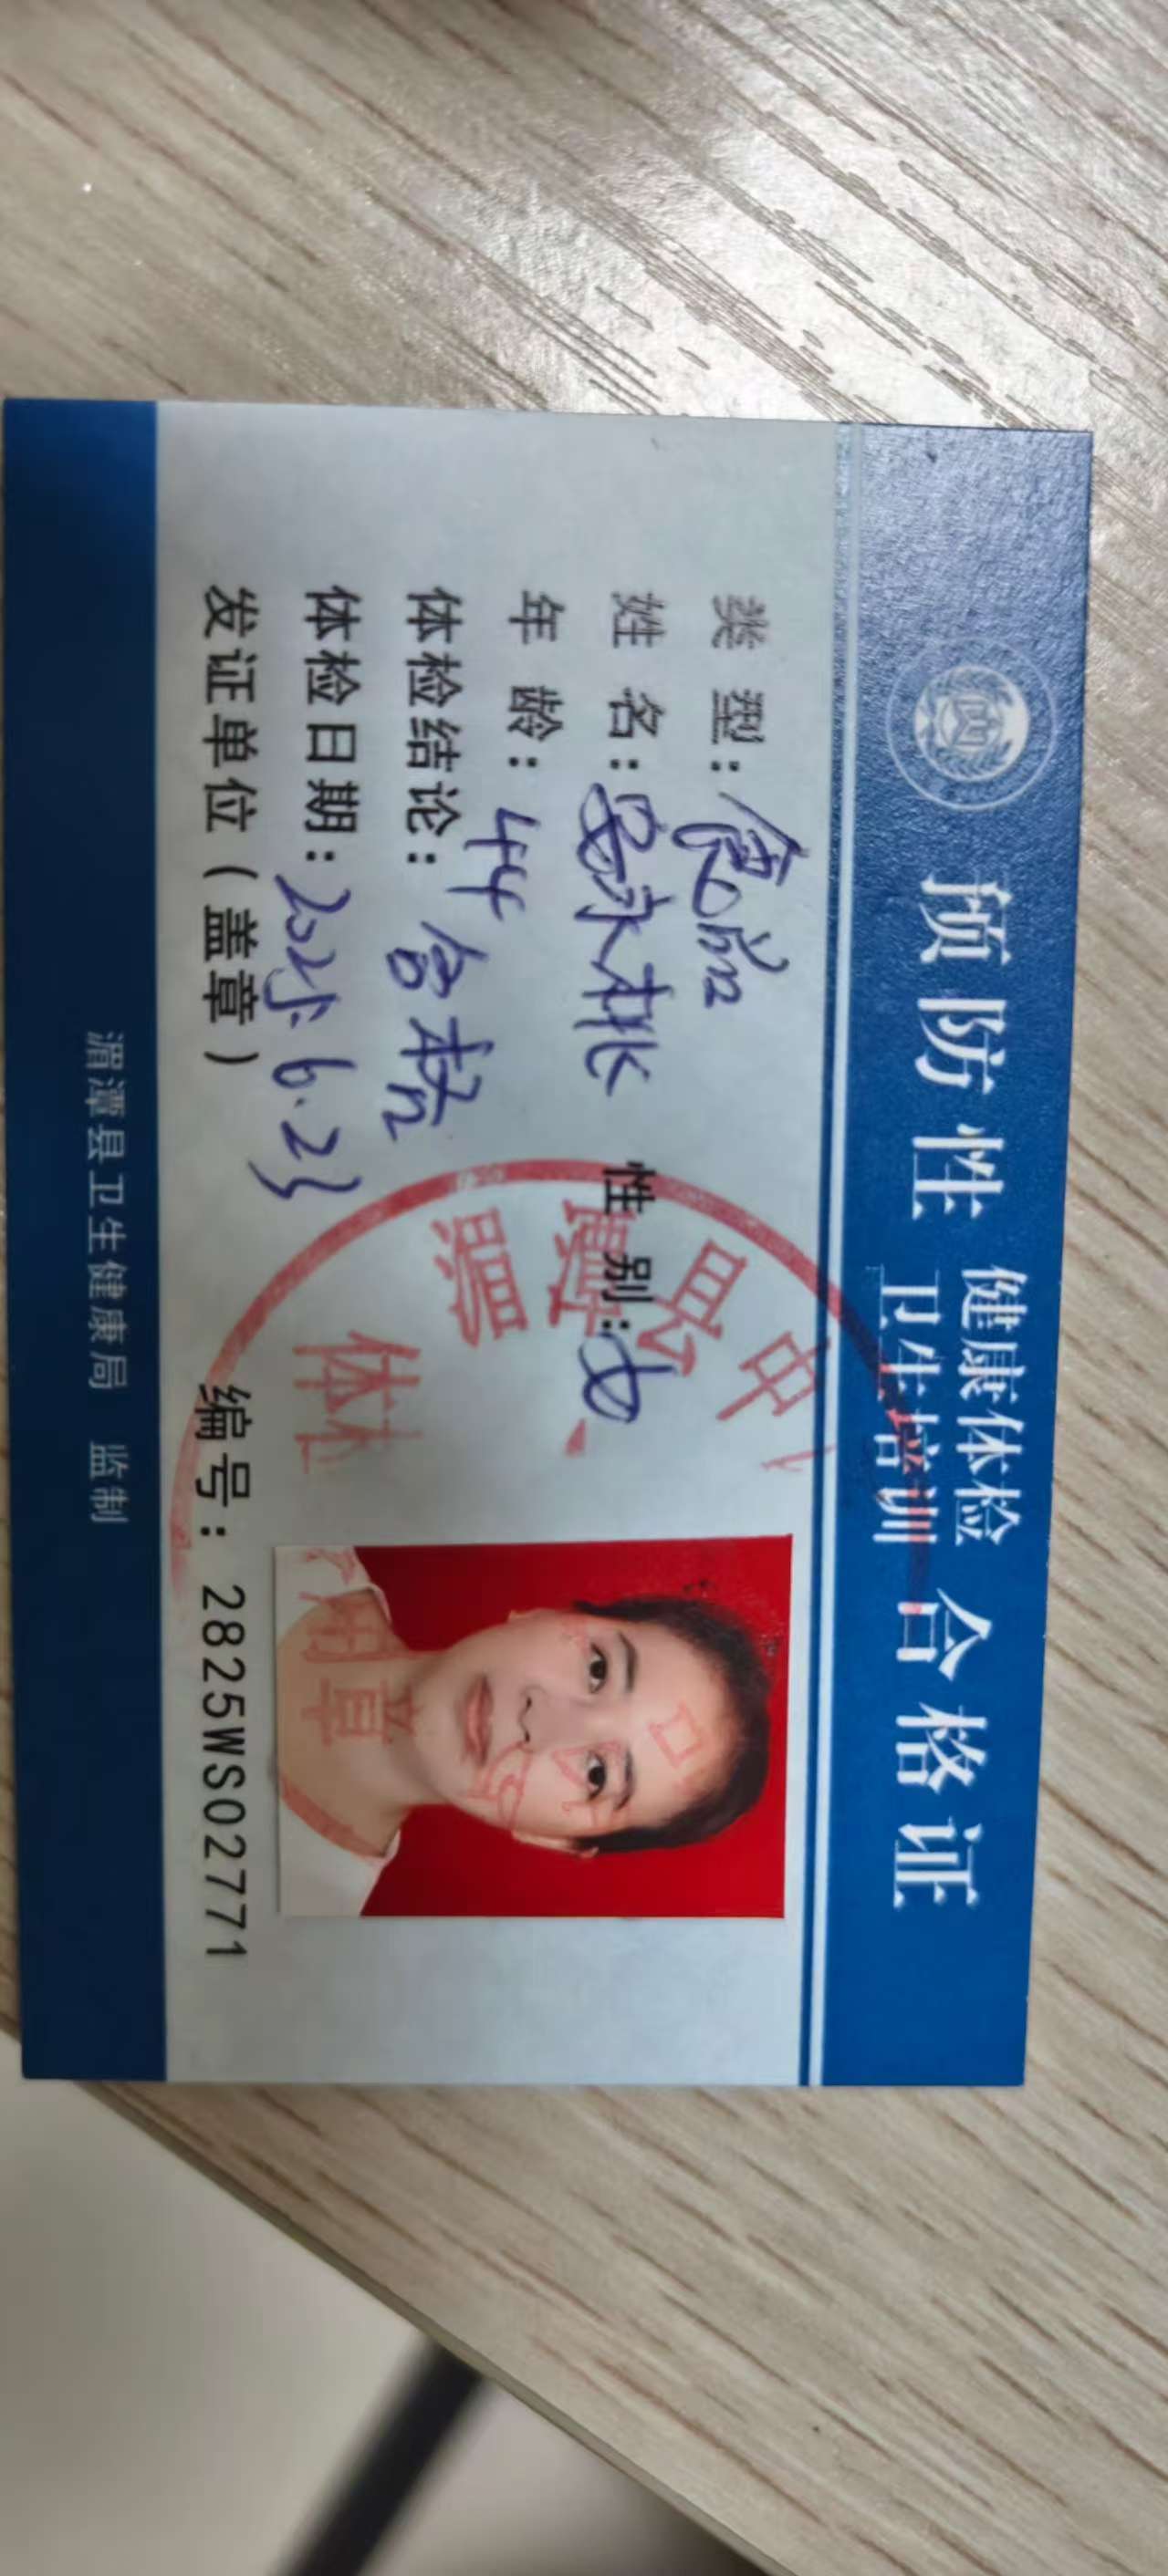 预防性 健康体检 卫生培训 合格证
类 型：食品
姓 名：晏永桃 性 别：女
年 龄：44
体检结论：合格
体检日期：2025.6.23
发证单位（盖章）
编号：2825WS02771
湄潭县卫生健康局 监制